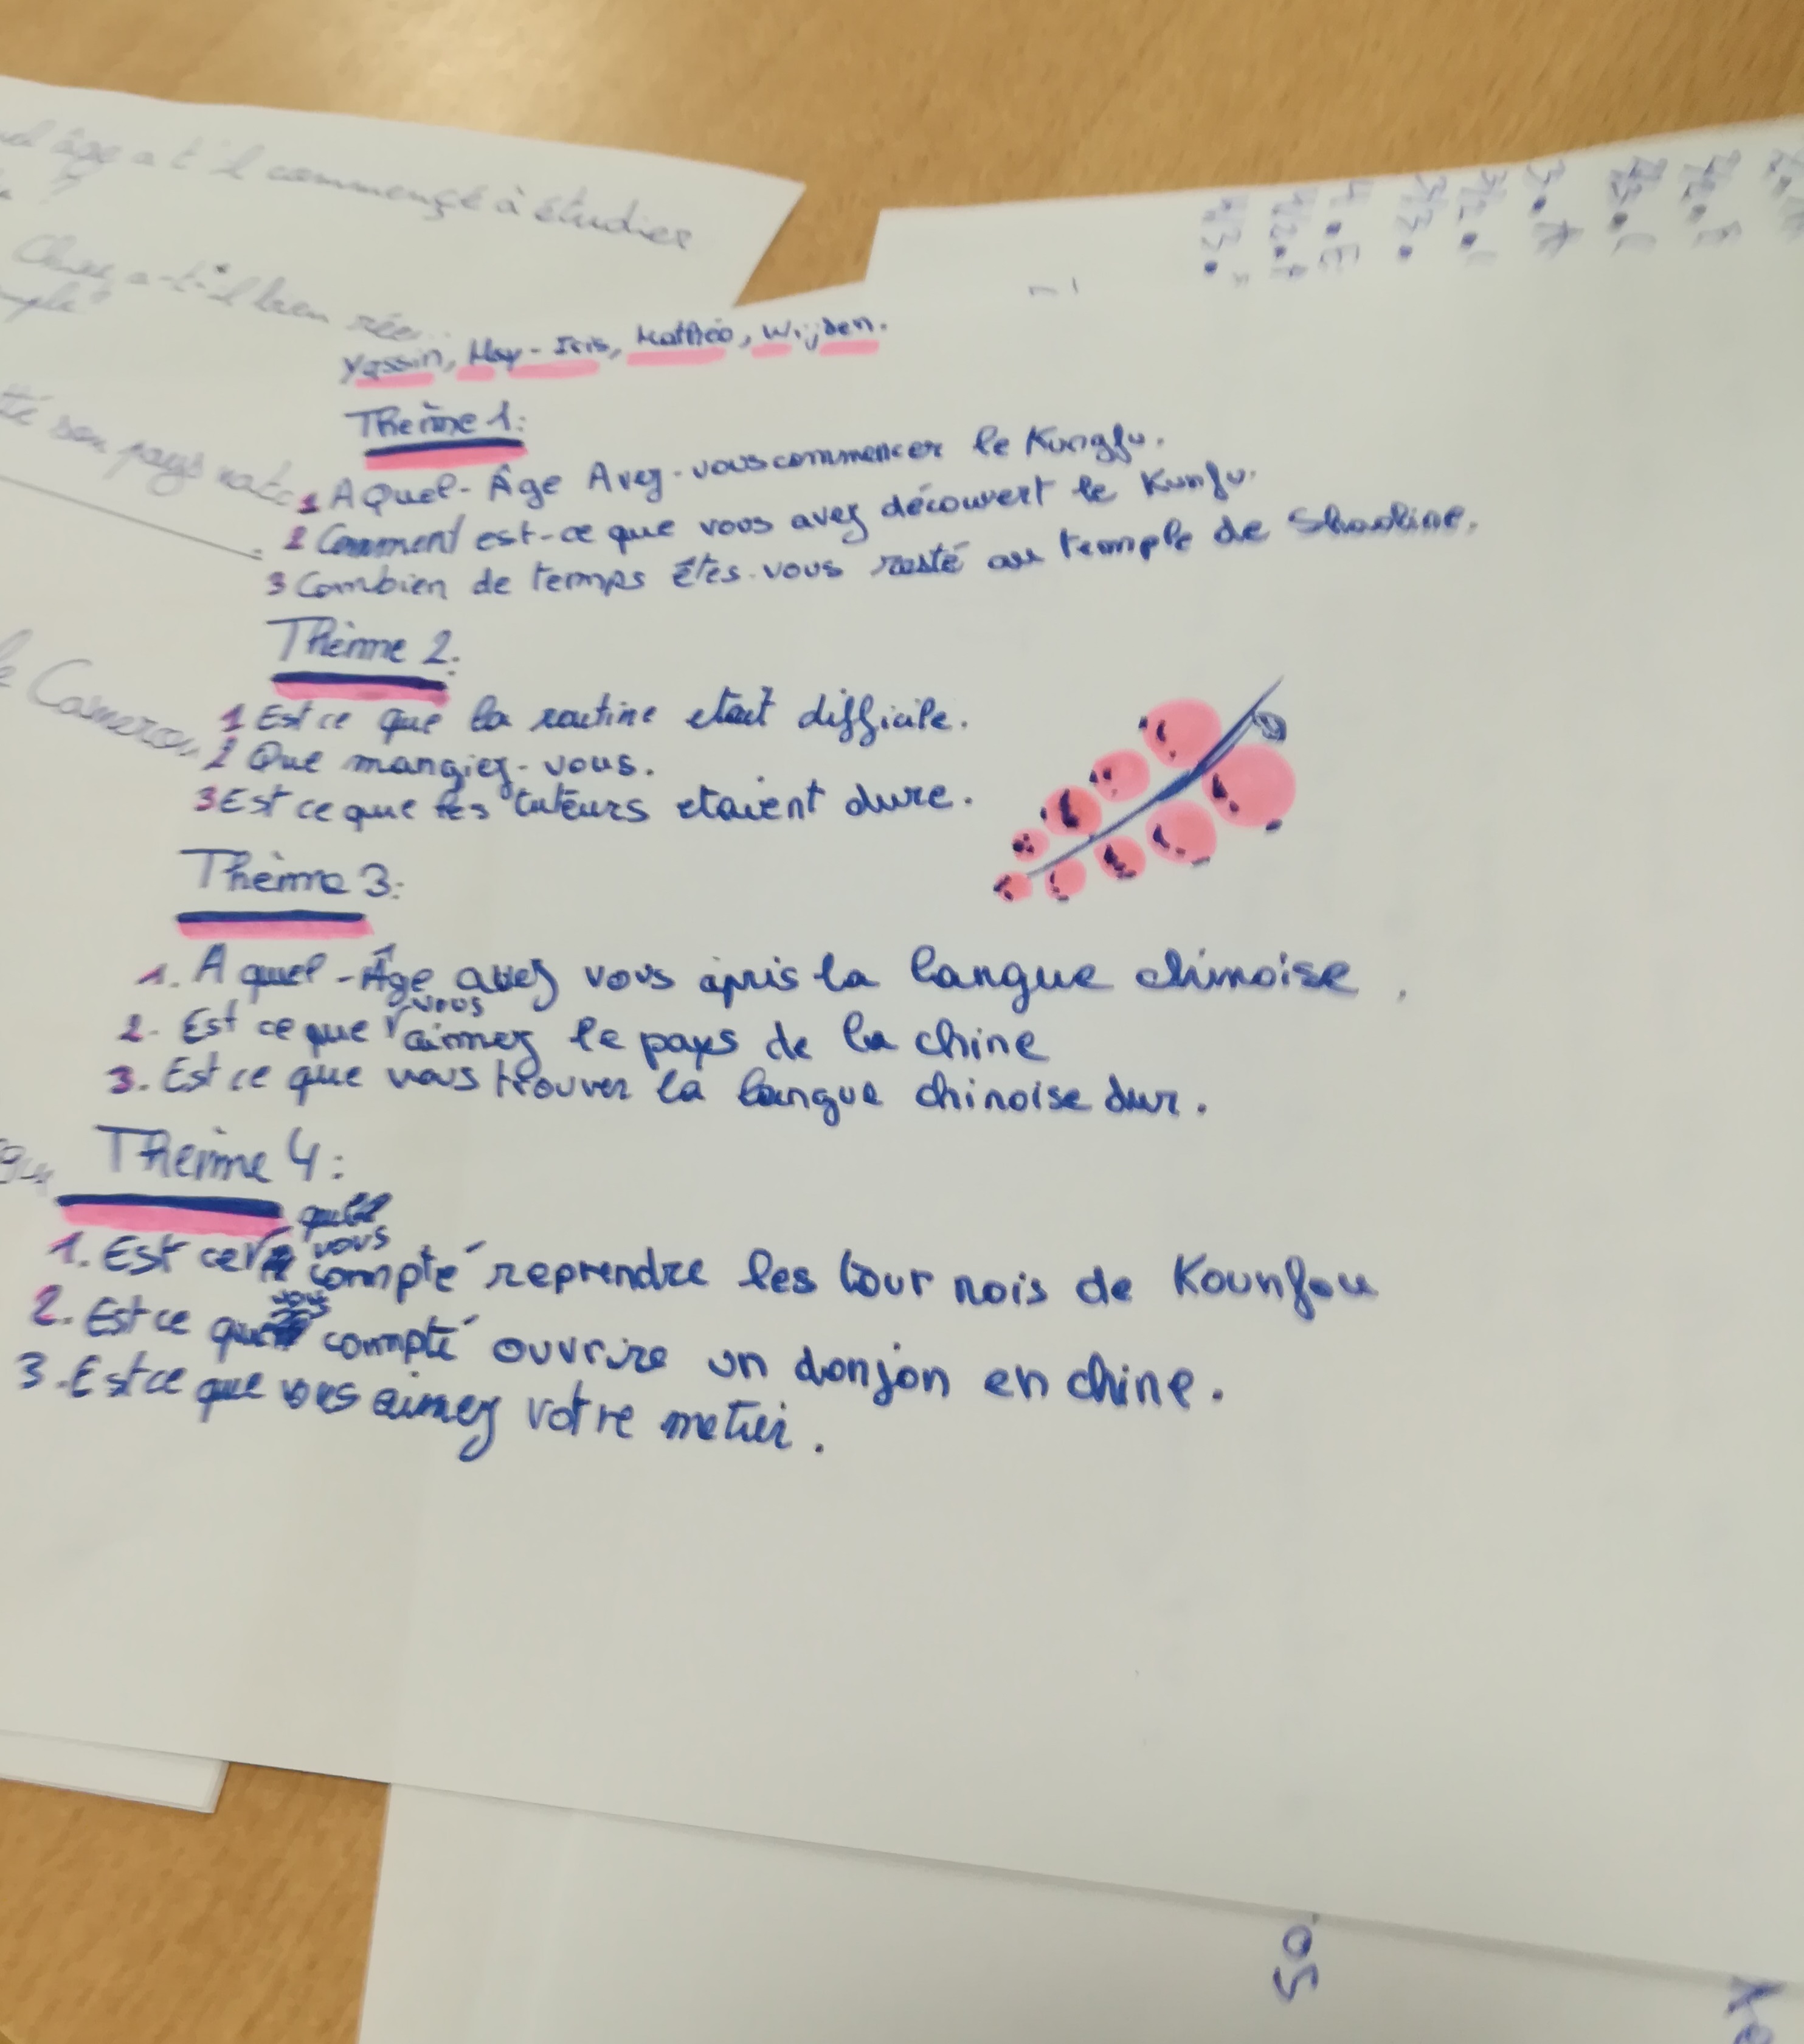 âge a t'il commencé à étudier
a-t-il bien
Yassin, May-Iris, Mathéo, Wijden.
son pays nat
Thème 1:
1 A Quel-Âge Avez-vous commencer le Kungfu.
2 Comment est-ce que vous avez découvert le Kunfu.
3 Combien de temps êtes-vous resté au temple de Shaoline.
Thème 2:
1 Est ce que la routine etait difficile.
2 Que mangiez-vous.
3 Est ce que les tuteurs etaient dure.
Camerou
Thème 3:
1. A quel-Âge avez vous apris la langue chinoise.
2. Est ce que vous aimez le pays de la chine
3. Est ce que vous trouver la langue chinoise dur.
Thème 4:
1. Est ce que vous compté reprendre les tournois de Kounfou
2. Est ce que vous compté ouvrire un donjon en chine.
3. Est ce que vous aimez votre metier.